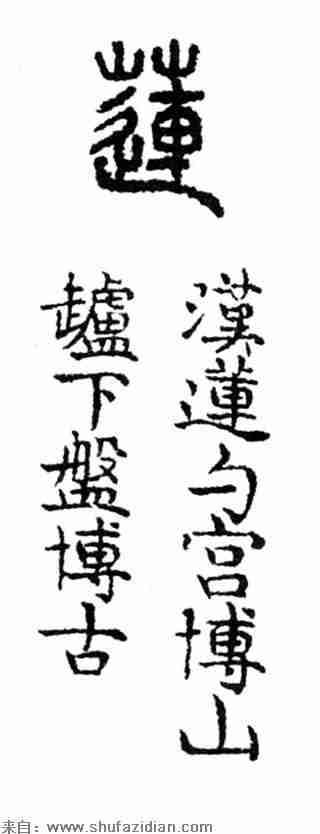 蓮
漢蓮勺宫博山
下盤博古
来自：www.shufazidian.com